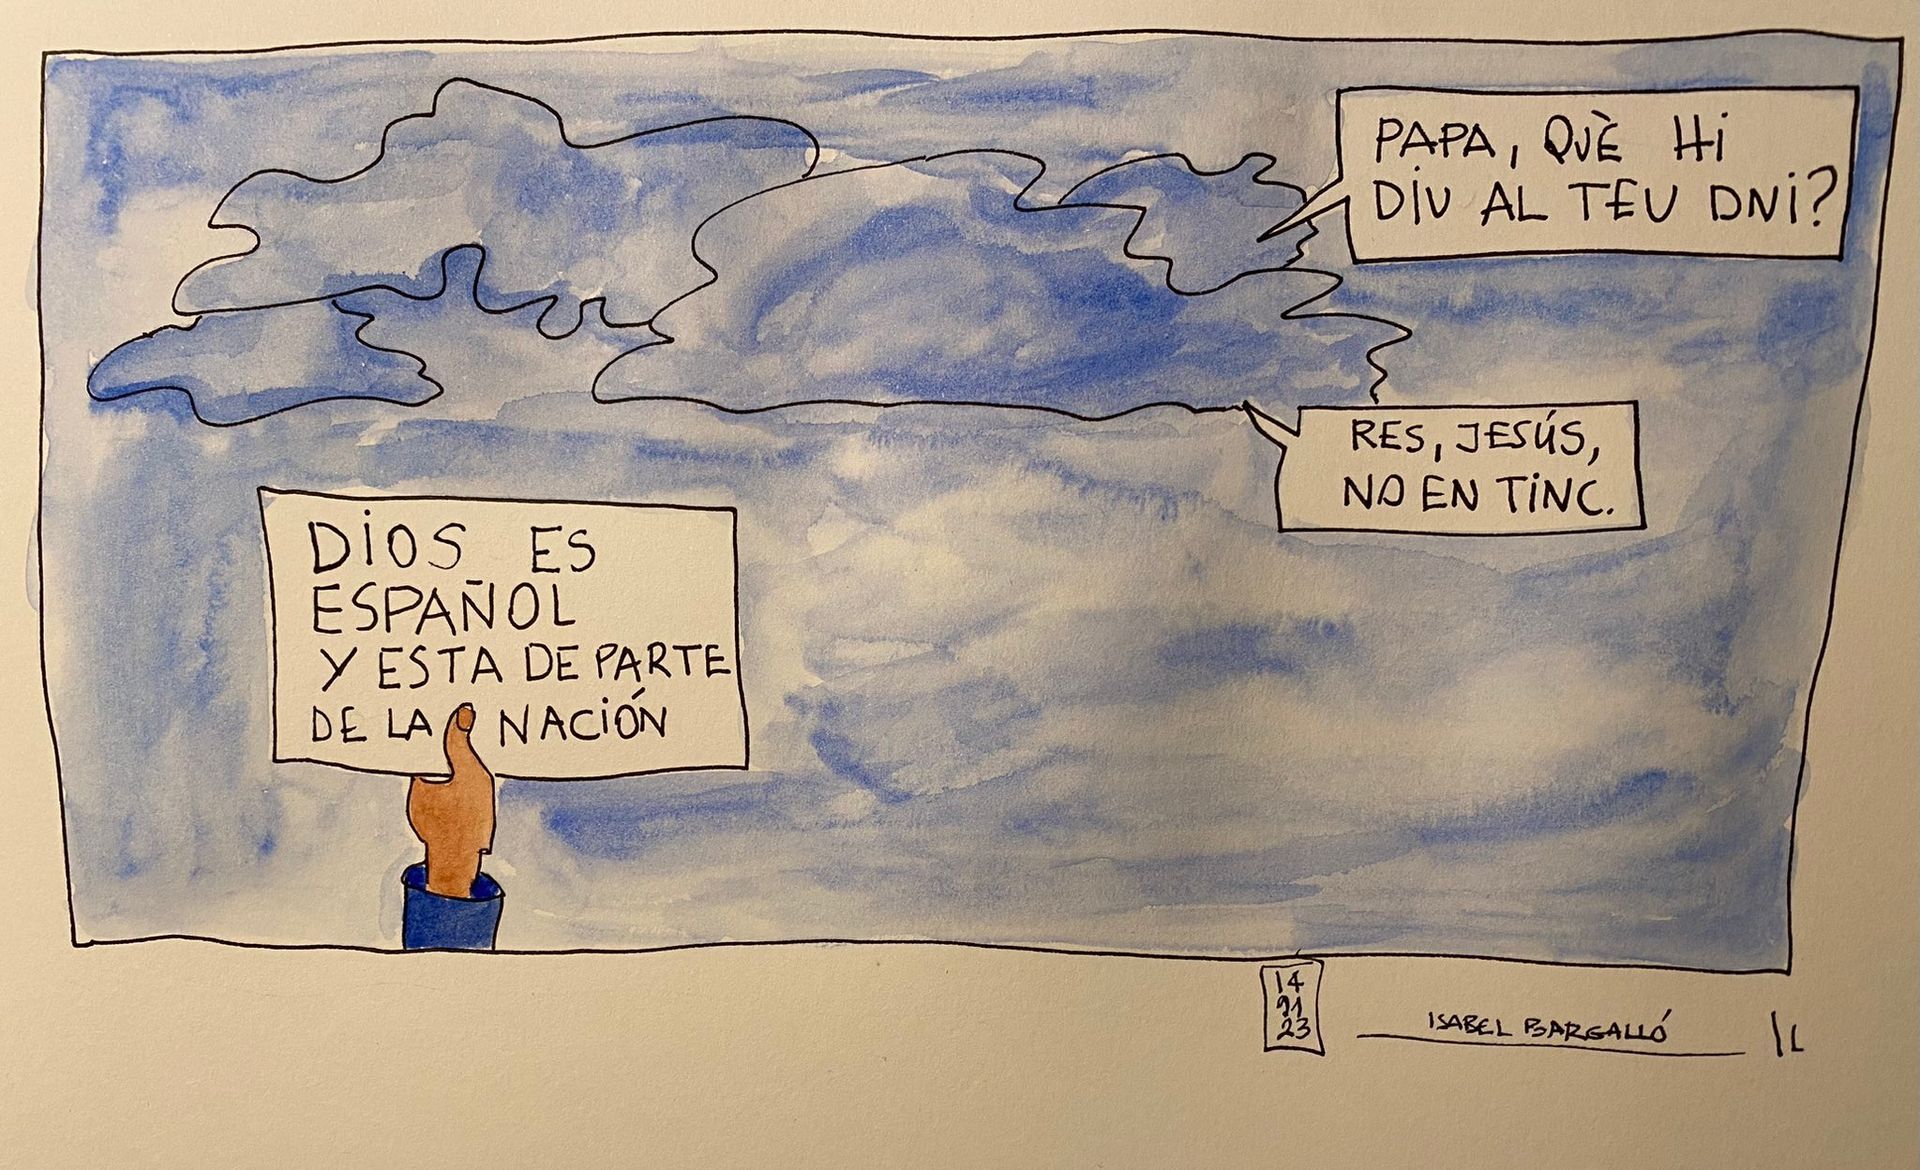 PAPA, QUÈ HI
DIU AL TEU DNI?
RES, JESÚS,
NO EN TINC.
DIOS ES
ESPAÑOL
Y ESTA DE PARTE
DE LA NACIÓN
14
11
23
ISABEL BARGALLÓ